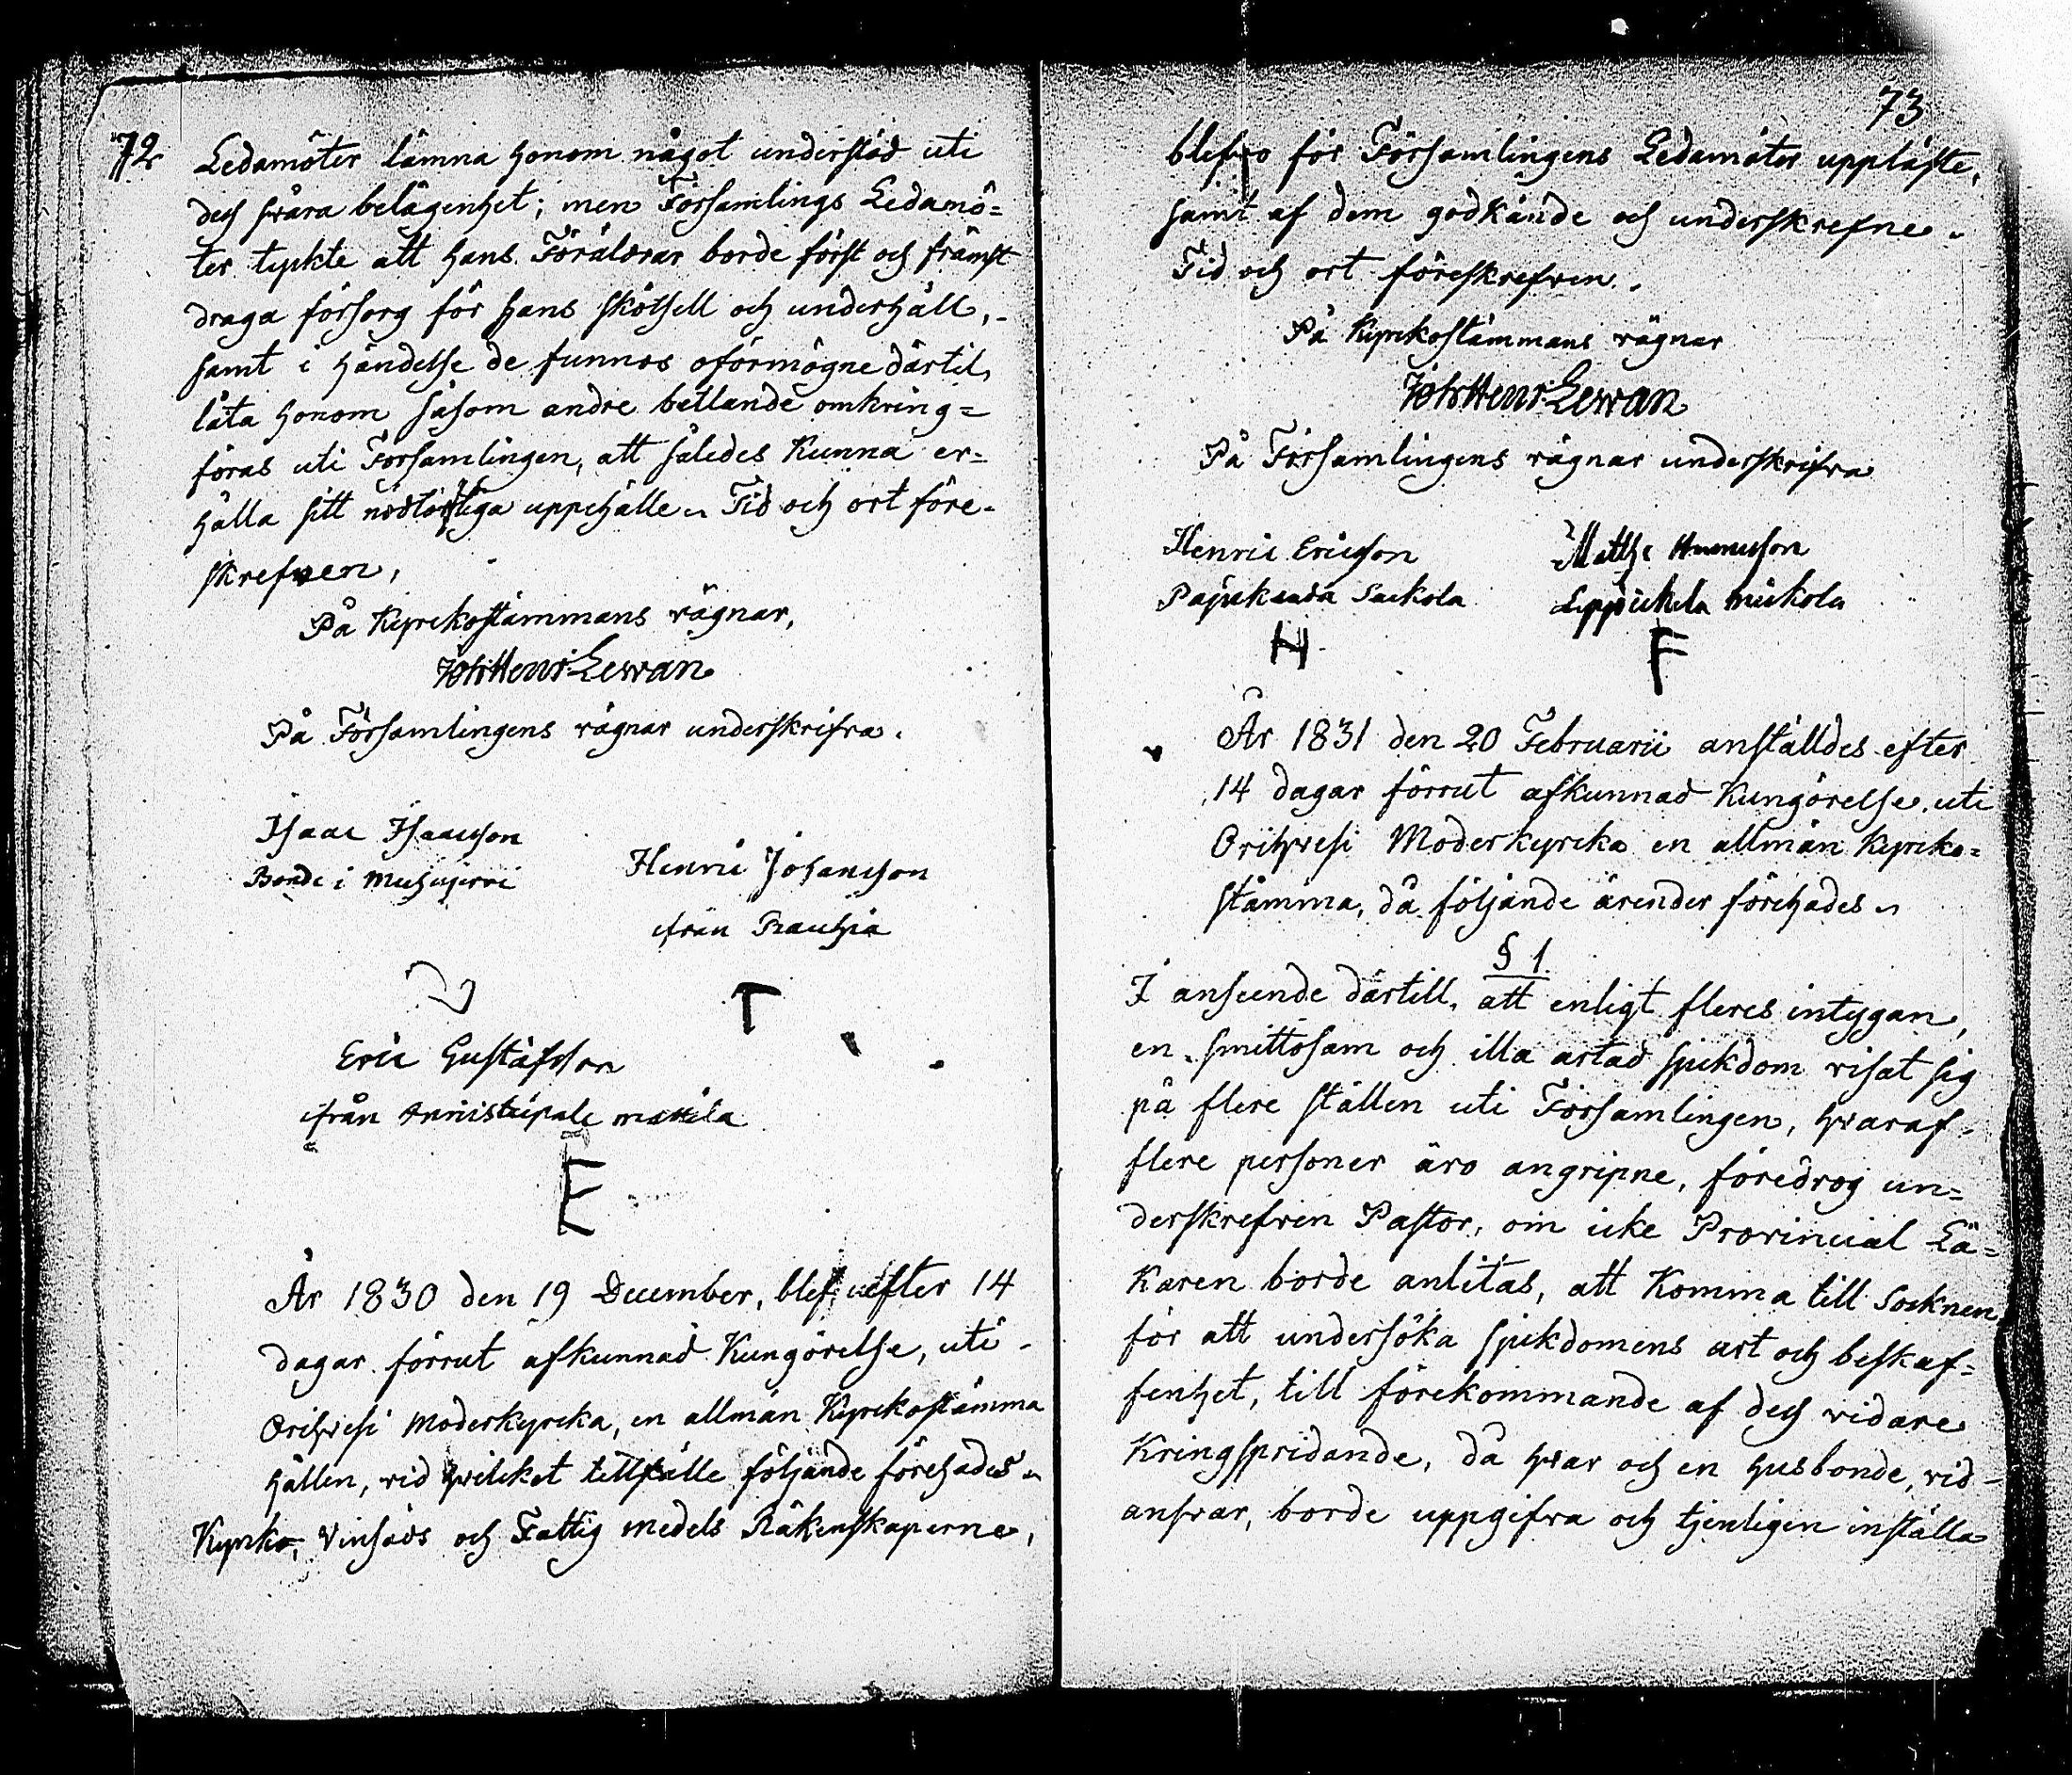 72
Ledamöter lämna honom något understöd uti
dess svåra belägenhet; men Församlings Ledamö=
ter tyckte att hans Föräldrar borde först och främst
draga försorg för hans skötsell och underhåll,
samt i händelse de funnos oförmögne därtil,
låta honom såsom andre bettlande omkring=
föras uti Församlingen, att således Kunna er=
hålla sitt nödtorftiga uppehälle. Tid och ort före=
skrefven,
På Kyrckostämmans vägnar,
Joh Henr Levvan
På Församlingens vägnar underskrifva.
Isaac Isaacsson
Bonde i
Henric Johansson
ifrån Rauhia
T
Eric Gustafsson
ifrån mattila
E
År 1830 den 19 December, blef efter 14
dagar förrut afkunnad Kungörelse, uti
Orihvesi Moderkyrcka, en allmän Kyrckostämma
hållen, vid hvilcket tillfälle följande förehades.
Kyrcko, Vinsäds och Fattig medels Räkenskaperne,
73
blefvo för Församlingens Ledamöter uppläste,
samt af dem godkände och underskrefne.
Tid och ort föreskrefven.
På Kyrckostämmans vägnar
Joh Henr Levvan
På Församlingens vägnar underskrifva
Henric Ericsson
Matts
H
F
År 1831 den 20 Februarii anställdes efter
14 dagar förrut afkunnad Kungörelse, uti
Orihvesi Moderkyrcka en allmän Kyrcko=
stämma, då följande ärender förehades.
§ 1.
I anseende därtill, att enligt fleres intygan,
en smittosam och illa artad sjukdom visat sig
på flere ställen uti Församlingen, hvaraf
flere personer äro angripne, föredrog un=
derskrefven Pastor, om icke Provincial Lä=
karen borde anlitas, att Komma till Socknen
för att undersöka sjukdomens art och beskaf=
fenhet, till förekommande af dess vidare
Kringspridande, då hvar och en husbonde, vid
ansvar, borde uppgifva och tjenligen inställa